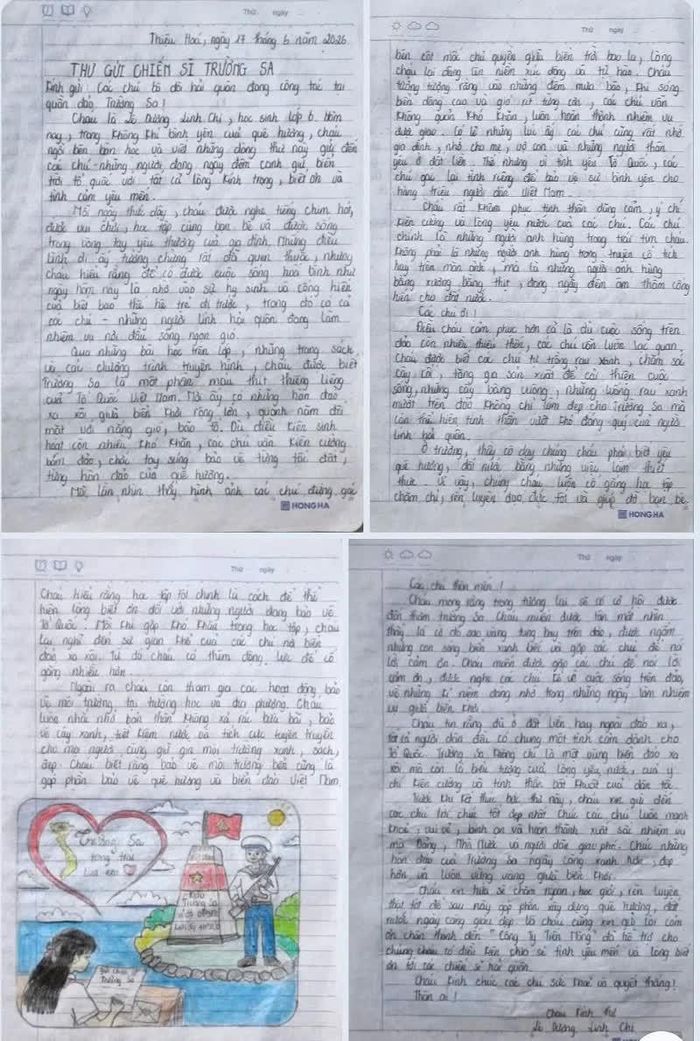 Thứ ngày
Thiệu Hoá, ngày 17 tháng 5 năm 2026
THƯ GỬI CHIẾN SĨ TRƯỜNG SA
Kính gửi: Các chú bộ đội hải quân đang công tác tại
quần đảo Trường Sa!
Cháu là Lê Dương Linh Chi, học sinh lớp 6. Hôm
nay, trong không khí bình yên của quê hương, cháu
ngồi bên bàn học và viết những dòng thư này gửi đến
các chú - những người đang ngày đêm canh giữ biển
trời tổ quốc với tất cả lòng kính trọng, biết ơn và
tình cảm yêu mến.
Mỗi ngày thức dậy, cháu được nghe tiếng chim hót,
được vui chơi, học tập cùng bạn bè và được sống
trong vòng tay yêu thương của gia đình. Những điều
bình dị ấy tưởng chừng rất đỗi quen thuộc, nhưng
cháu hiểu rằng để có được cuộc sống hoà bình như
ngày hôm nay là nhờ vào sự hy sinh và cống hiến
của biết bao thế hệ trẻ đi trước, trong đó có cả
các chú - những người lính hải quân đang làm
nhiệm vụ nơi đầu sóng ngọn gió.
Qua những bài học trên lớp, những trang sách
và các chương trình truyền hình, cháu được biết
Trường Sa là một phần máu thịt thiêng liêng
của Tổ Quốc Việt Nam. Nơi ấy có những hòn đảo
xa xôi giữa biển khơi rộng lớn, quanh năm đối
mặt với nắng gió, bão tố. Dù điều kiện sinh
hoạt còn nhiều khó khăn, các chú vẫn kiên cường
bám đảo, chắc tay súng bảo vệ từng tấc đất,
từng hòn đảo của quê hương.
Mỗi lần nhìn thấy hình ảnh các chú đứng gác
HONG HA
Thứ ngày
bên cột mốc chủ quyền giữa biển trời bao la, lòng
cháu lại dâng lên niềm xúc động và tự hào. Cháu
tưởng tượng rằng vào những đêm mưa bão, khi sóng
biển dâng cao và gió rít từng cơn, các chú vẫn
không quản khó khăn, luôn hoàn thành nhiệm vụ
được giao. Có lẽ những lúc ấy các chú cũng rất nhớ
gia đình, nhớ cha mẹ, vợ con và những người thân
yêu ở đất liền. Thế nhưng vì tình yêu Tổ Quốc, các
chú gác lại tình riêng để bảo vệ sự bình yên cho
hàng triệu người dân Việt Nam.
Cháu rất khâm phục tinh thần dũng cảm, ý chí
kiên cường và lòng yêu nước của các chú. Các chú
chính là những người anh hùng trong trái tim cháu
không phải là những người anh hùng trong truyện cổ tích
hay trên màn ảnh, mà là những người anh hùng
bằng xương bằng thịt, đang ngày đêm âm thầm cống
hiến cho đất nước.
Các chú ơi!
Điều cháu cảm phục hơn cả là dù cuộc sống trên
đảo còn nhiều thiếu thốn, các chú vẫn luôn lạc quan.
Cháu được biết các chú tự trồng rau xanh, chăm sóc
cây cối, tăng gia sản xuất để cải thiện cuộc
sống, những cây bàng vuông, những luống rau xanh
mướt trên đảo không chỉ làm đẹp cho Trường Sa mà
còn thể hiện tinh thần vượt khó đáng quý của người
lính hải quân.
Ở trường, thầy cô dạy chúng cháu phải biết yêu
quê hương, đất nước bằng những việc làm thiết
thực. Vì vậy, chúng cháu luôn cố gắng học tập
chăm chỉ, rèn luyện đạo đức tốt và giúp đỡ bạn bè.
HONG HA
Thứ ngày
Cháu hiểu rằng học tập tốt chính là cách để thể
hiện lòng biết ơn đối với những người đang bảo vệ
Tổ Quốc. Mỗi khi gặp khó khăn trong học tập, cháu
lại nghĩ đến sự gian khổ của các chú nơi biển
đảo xa xôi. Từ đó cháu có thêm động lực để cố
gắng nhiều hơn.
Ngoài ra cháu còn tham gia các hoạt động bảo
vệ môi trường tại trường học và địa phương. Cháu
luôn nhắc nhở bản thân không xả rác bừa bãi, bảo
vệ cây xanh, tiết kiệm nước và tích cực tuyên truyền
cho mọi người cùng giữ gìn môi trường xanh, sạch,
đẹp. Cháu biết rằng bảo vệ môi trường biển cũng là
góp phần bảo vệ quê hương và biển đảo Việt Nam.
Trường Sa
trong trái
tim em
Đảo
Trường Sa
Gửi chiến sĩ
Trường Sa
Thứ ngày
Các chú thân mến!
Cháu mong rằng trong tương lai sẽ có cơ hội được
đến thăm Trường Sa. Cháu muốn được tận mắt nhìn
thấy lá cờ đỏ sao vàng tung bay trên đảo, được ngắm
những con sóng biển xanh biếc và gặp các chú để nói
lời cảm ơn. Cháu muốn được gặp các chú để nói lời
cảm ơn, được nghe các chú kể về cuộc sống trên đảo,
về những kỉ niệm đáng nhớ trong những ngày làm nhiệm
vụ giữa biển khơi.
Cháu tin rằng dù ở đất liền hay ngoài đảo xa,
tất cả người dân đều có chung một tình cảm dành cho
Tổ Quốc. Trường Sa không chỉ là một vùng biển đảo xa
xôi mà còn là biểu tượng của lòng yêu nước, của ý
chí kiên cường và tinh thần bất khuất của dân tộc.
Trước khi kết thúc bức thư này, cháu xin gửi đến
các chú lời chúc tốt đẹp nhất. Chúc các chú luôn mạnh
khoẻ, vui vẻ, bình an và hoàn thành xuất sắc nhiệm vụ
mà Đảng, Nhà Nước và người dân giao phó. Chúc những
hòn đảo của Trường Sa ngày càng xanh hơn, đẹp
hơn và luôn vững vàng giữa biển khơi.
Cháu xin hứa sẽ chăm ngoan, học giỏi, rèn luyện
thật tốt để sau này góp phần xây dựng quê hương, đất
nước ngày càng giàu đẹp. Và cháu cũng xin gửi lời cảm
ơn chân thành đến "Công Ty Tiến Nông" đã hỗ trợ cho
chúng cháu có điều kiện chia sẻ tình yêu mến và lòng biết
ơn tới các chiến sĩ hải quân.
Cháu kính chúc các chú sức khoẻ và quyết thắng!
Thân ái!
Cháu kính thư
Lê Dương Linh Chi
HONG HA